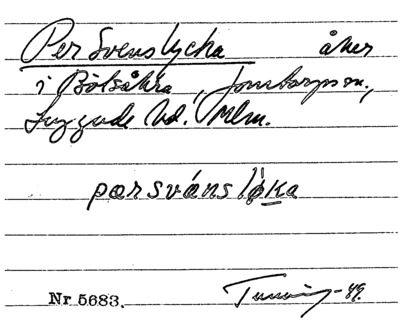 Per Svens lycka åker
i Bölsåkra, Jonstorps sn.,
Luggude hd. Mlm.
pærsvæns løka
Nr 5683. -49.